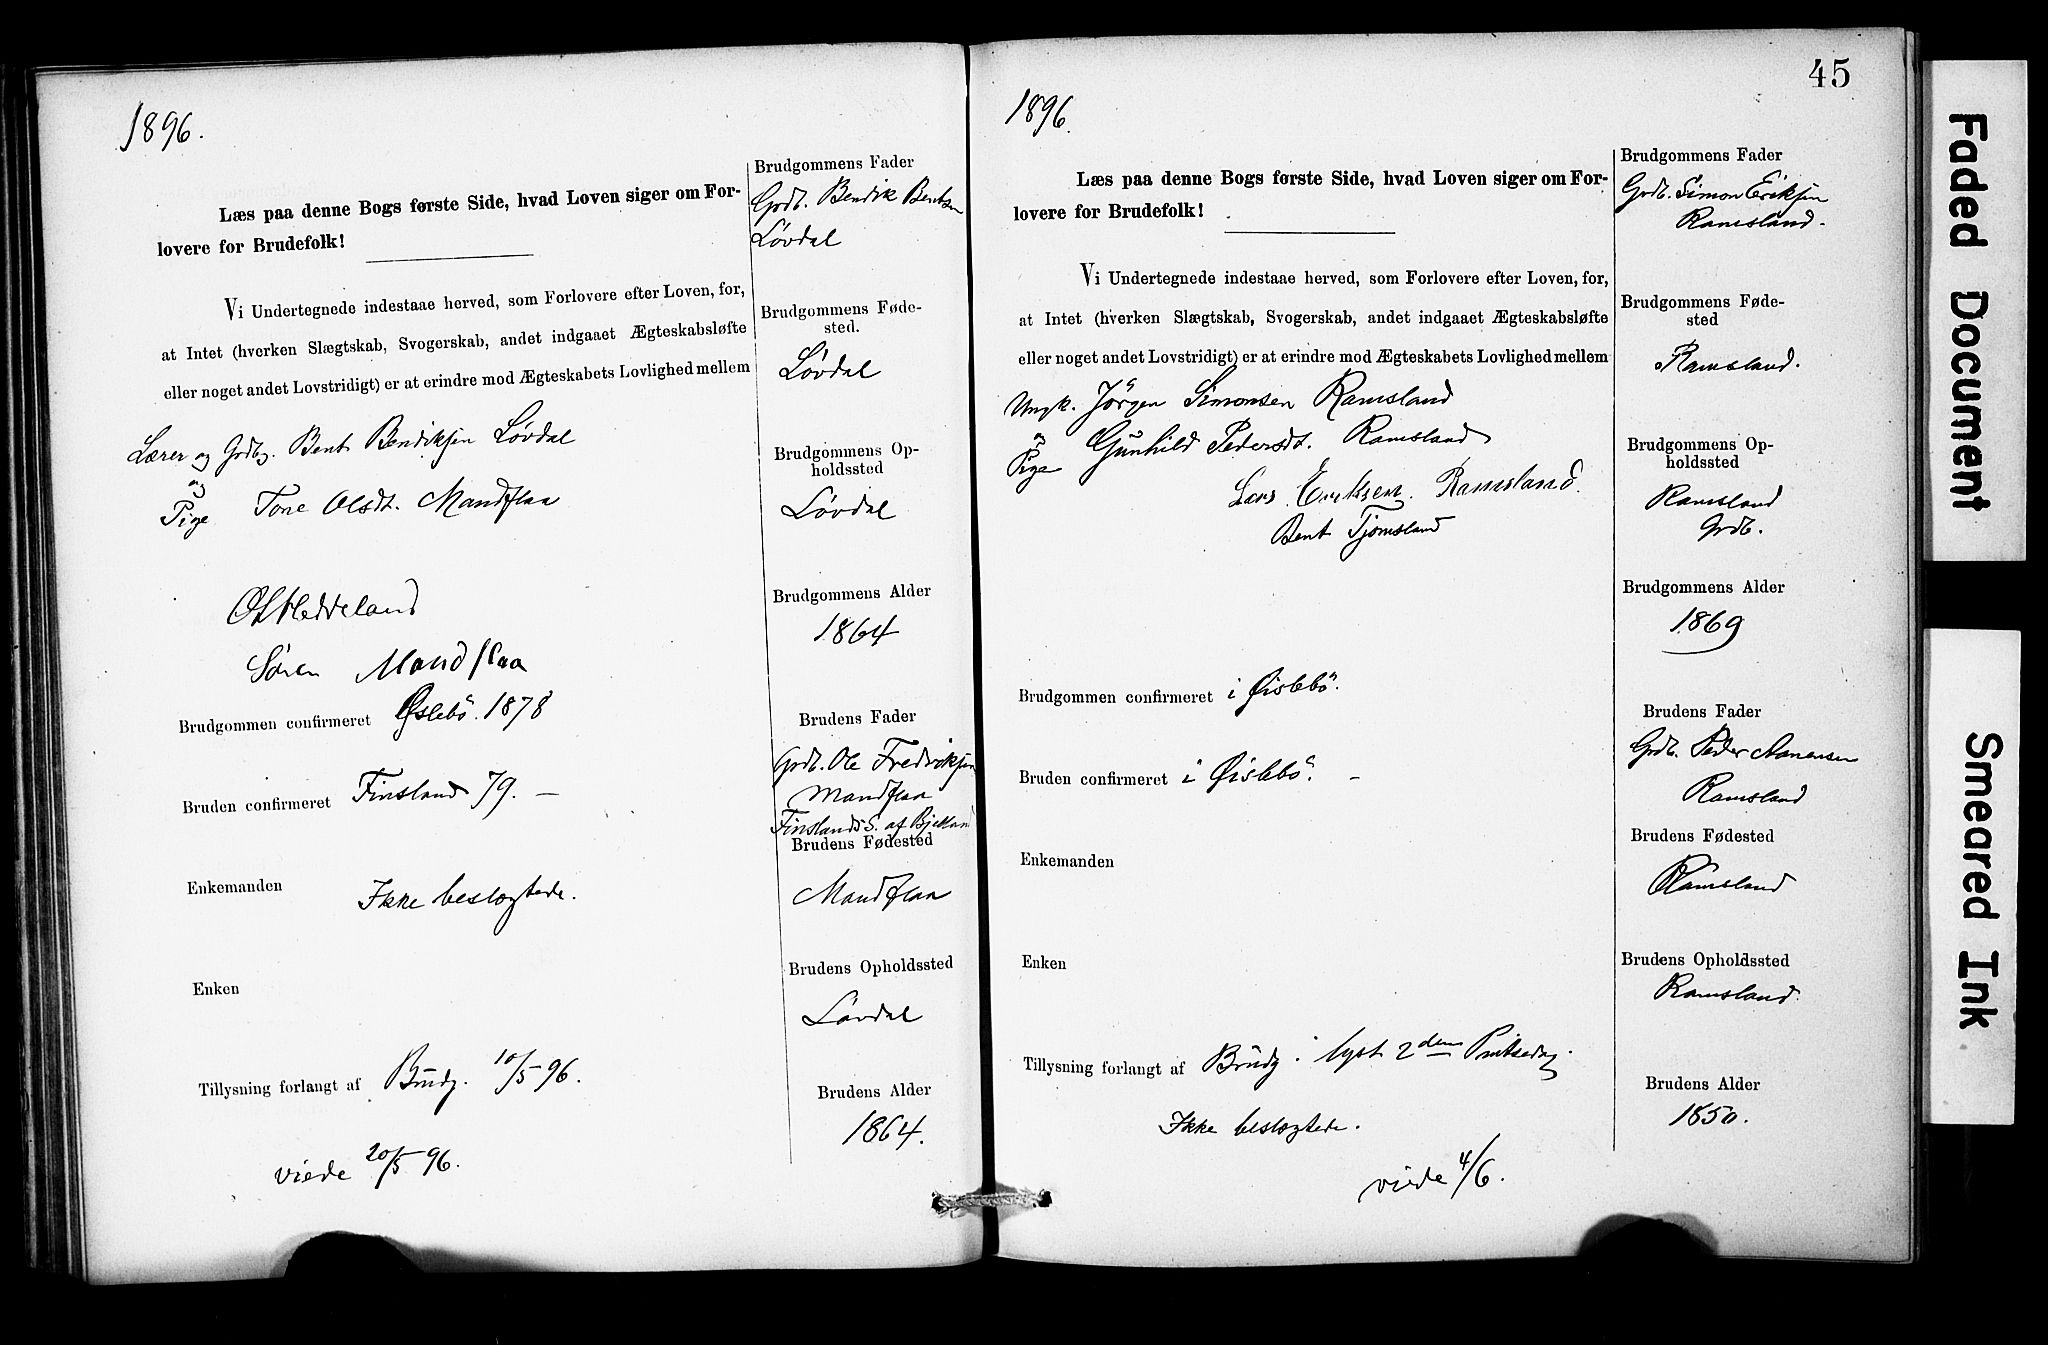 1896.
Læs paa denne Bogs første Side, hvad Loven siger om For-
lovere for Brudefolk!
Vi Undertegnede indestaae herved, som Forlovere efter Loven, for,
at Intet (hverken Slægtskab, Svogerskab, andet indgaaet Ægteskabsløfte
eller noget andet Lovstridigt) er at erindre mod Ægteskabets Lovlighed mellem
Lærer og Grdbg. Bent Bendiksen Løvdal
og
Pige Tone Olsdt. Mandflaa
Heddeland
Søren Mandflaa
Brudgommen confirmeret Øslebö. 1878
Bruden confirmeret Finsland 79. —
Enkemanden Ikke beslægtede.
Enken
Tillysning forlangt af Brudg. 10/5 96.
viede 20/5 96.
Brudgommens Fader
Grdb. Bendik Bentsen
Løvdal
Brudgommens Føde-
sted.
Løvdal
Brudgommens Op-
holdssted
Løvdal
Brudgommens Alder
1864
Brudens Fader
Grdb. Ole Fredriksen
Mandflaa
Finslands S. af Bjelland
Brudens Fødested
Mandflaa
Brudens Opholdssted
Løvdal
Brudens Alder
1864.
45
1896.
Læs paa denne Bogs første Side, hvad Loven siger om For-
lovere for Brudefolk!
Vi Undertegnede indestaae herved, som Forlovere efter Loven, for,
at Intet (hverken Slægtskab, Svogerskab, andet indgaaet Ægteskabsløfte
eller noget andet Lovstridigt) er at erindre mod Ægteskabets Lovlighed mellem
Ungk. Jörgen Simonsen Ramsland
og
Pige Gunhild Pedersdt. Ramsland
Lars Eriksen Ramsland.
Bent Tjomsland
Brudgommen confirmeret i Øislebö.
Bruden confirmeret i Øislebö. —
Enkemanden
Enken
Tillysning forlangt af Brudg. lyst 2den Pintsedag.
Ikke beslægtede.
viede 4/6.
Brudgommens Fader
Grdb. Simon Eriksen
Ramsland.
Brudgommens Føde-
sted
Ramsland.
Brudgommens Op-
holdssted
Ramsland
Grdb.
Brudgommens Alder
1869
Brudens Fader
Grdb. Peder Aanensen
Ramsland
Brudens Fødested
Ramsland
Brudens Opholdssted
Ramsland.
Brudens Alder
1850.
Faded Document
Smeared Ink